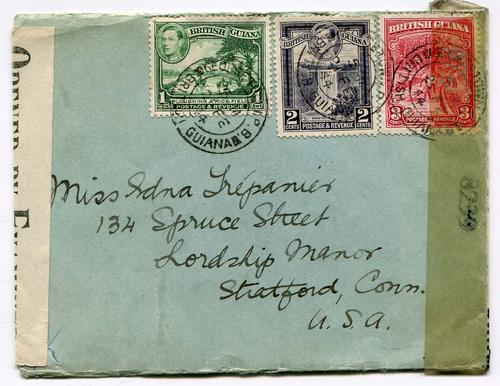 BRITISH GUIANA
1
PLOUGHING A RICE FIELD
POSTAGE & REVENUE
BRITISH GUIANA
2 CENTS
POSTAGE & REVENUE
2 CENTS
BRITISH GUIANA
3 CENTS
POSTAGE & REVENUE
3
GUIANA
OPENED BY EXAMINER
8299
Miss Edna Trépanier
134 Spruce Street
Lordship Manor
Stratford, Conn.
U.S.A.